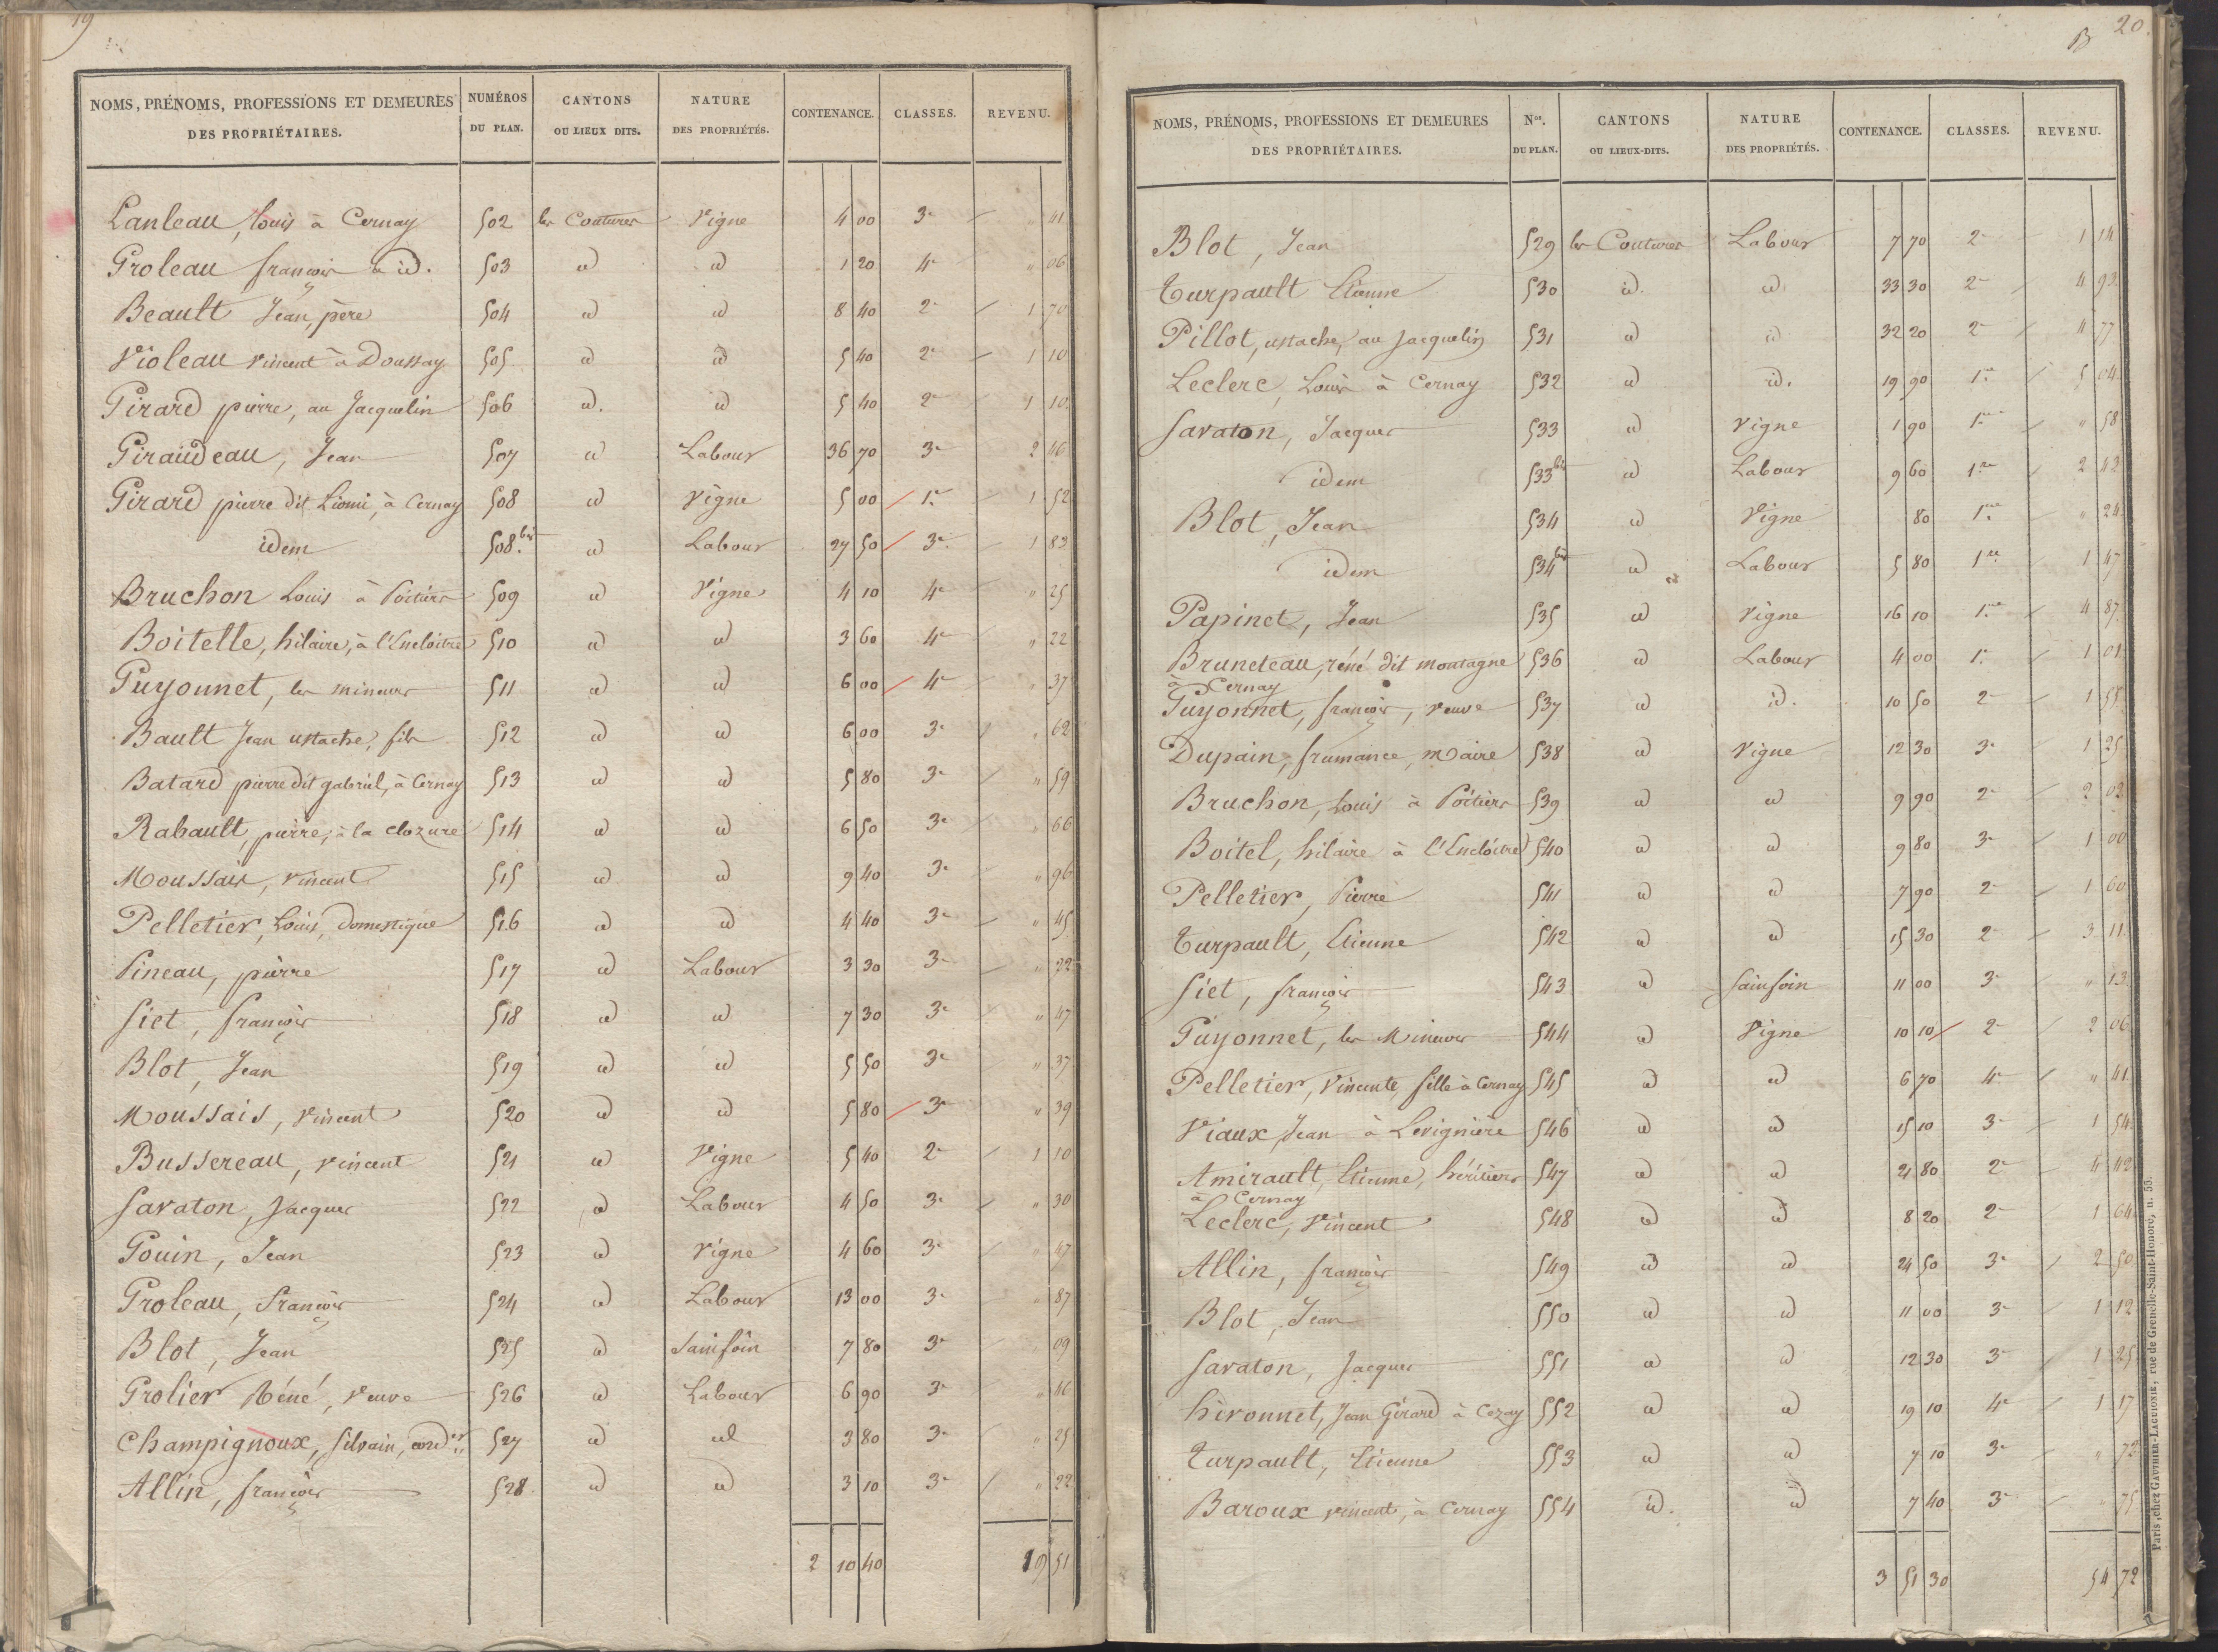 19
NOMS, PRÉNOMS, PROFESSIONS ET DEMEURES DES PROPRIÉTAIRES. NUMÉROS DU PLAN. CANTONS OU LIEUX DITS. NATURE DES PROPRIÉTÉS. CONTENANCE. CLASSES. REVENU.
Lanleau, Louis à Cernay 502 les Coutures Vigne 4 00 3e " 41
Groleau françois à id. 503 id id 1 20 4e " 06
Beault Jean, père 504 id id 8 40 2e 1 70
Violeau Vincent à Doussay 505 id id 5 40 2e 1 10
Girard pierre, au Jacquelin 506 id. id 5 40 2e 1 10
Giraudeau, Jean 507 id Labour 36 70 3e 2 46
Girard pierre dit Liomi, à Cernay 508 id Vigne 5 00 1e 1 52
idem 508.bis id Labour 27 50 3e 1 83
Bruchon Louis à Poitiers 509 id Vigne 4 10 4e " 25
Boitelle, hilaire, à l'Encloître 510 id id 3 60 4e " 22
Guyonnet, les mineurs 511 id id 6 00 4e " 37
Bault Jean ustache, fils 512 id id 6 00 3e " 62
Batard pierre dit gabriel, à Cernay 513 id id 5 80 3e " 59
Rabault, pierre, à la clozure 514 id id 6 50 3e " 66
Moussais, vincent 515 id id 9 40 3e " 96
Pelletier, Louis, domestique 516 id id 4 40 3e " 45
Pineau, pierre 517 id Labour 3 30 3e " 22
Siet, françois 518 id id 7 30 3e " 47
Blot, Jean 519 id id 5 50 3e " 37
Moussais, Vincent 520 id id 5 80 3e " 39
Bussereau, vincent 521 id Vigne 5 40 2e 1 10
Savaton, Jacques 522 id Labour 4 50 3e " 30
Gouin, Jean 523 id Vigne 4 60 3e " 47
Groleau, françois 524 id Labour 13 00 3e " 87
Blot, Jean 525 id Sainfoin 7 80 3e 09
Grolier Réné, Veuve 526 id Labour 6 90 3e " 46
Champignoux, Silvain, cord.er 527 id id 3 80 3e " 25
Allin, françois 528 id id 3 10 3e " 22
2 10 40 19 51
B 20.
NOMS, PRÉNOMS, PROFESSIONS ET DEMEURES DES PROPRIÉTAIRES. Nos. DU PLAN. CANTONS OU LIEUX-DITS. NATURE DES PROPRIÉTÉS. CONTENANCE. CLASSES. REVENU.
Blot, Jean 529 les Coutures Labour 7 70 2e 1 14
Turpault Etienne 530 id. id. 33 30 2e 4 93
Pillot, ustache, au Jacquelin 531 id id 32 20 2e 4 77
Leclerc, Louis à Cernay 532 id id. 19 90 1re 5 04
Savaton, Jacques 533 id Vigne 1 90 1e " 58
idem 533bis id Labour 9 60 1re 2 43
Blot, Jean 534 id Vigne 80 1re " 24
idem 534bis id Labour 5 80 1re 1 47
Papinet, Jean 535 id Vigne 16 10 1re 4 87
Bruneteau, réné dit montagne 536 id Labour 4 00 1e 1 01
à Cernay
Guyonnet, françois, veuve 537 id id. 10 50 2e 1 55
Dupain, frumance, maire 538 id Vigne 12 30 3e 1 25
Bruchon, Louis à Poitiers 539 id id 9 90 2e 2 02
Boitel, hilaire à l'Encloître 540 id id 9 80 3e 1 00
Pelletier, Pierre 541 id id 7 90 2e 1 60
Turpault, Etienne 542 id id 15 30 2e 3 11
Siet, françois 543 id Sainfoin 11 00 3e " 13
Guyonnet, les Mineurs 544 id Vigne 10 10 2e 2 06
Pelletier, Vincente, fille à Cernay 545 id id 6 70 4e " 41
Viaux, Jean à Levignière 546 id id 15 10 3e 1 54
Amirault, Etienne, héritiers 547 id id 21 80 2e 4 42
à Cernay
Leclerc, Vincent 548 id id 8 20 2e 1 64
Allin, françois 549 id id 24 50 3e 2 50
Blot, Jean 550 id id 11 00 3e 1 12
Savaton, Jacques 551 id id 12 30 3e 1 25
hèronnet, Jean Gérard à Cozay 552 id id 19 10 4e 1 17
Turpault, Etienne 553 id id 7 10 3e " 72
Baroux vincent, à Cernay 554 id. id 7 40 3e " 75
3 51 30 54 72
Paris, chez GAUTHIER-LAGUIONIE, rue de Grenelle-Saint-Honoré, n. 55.